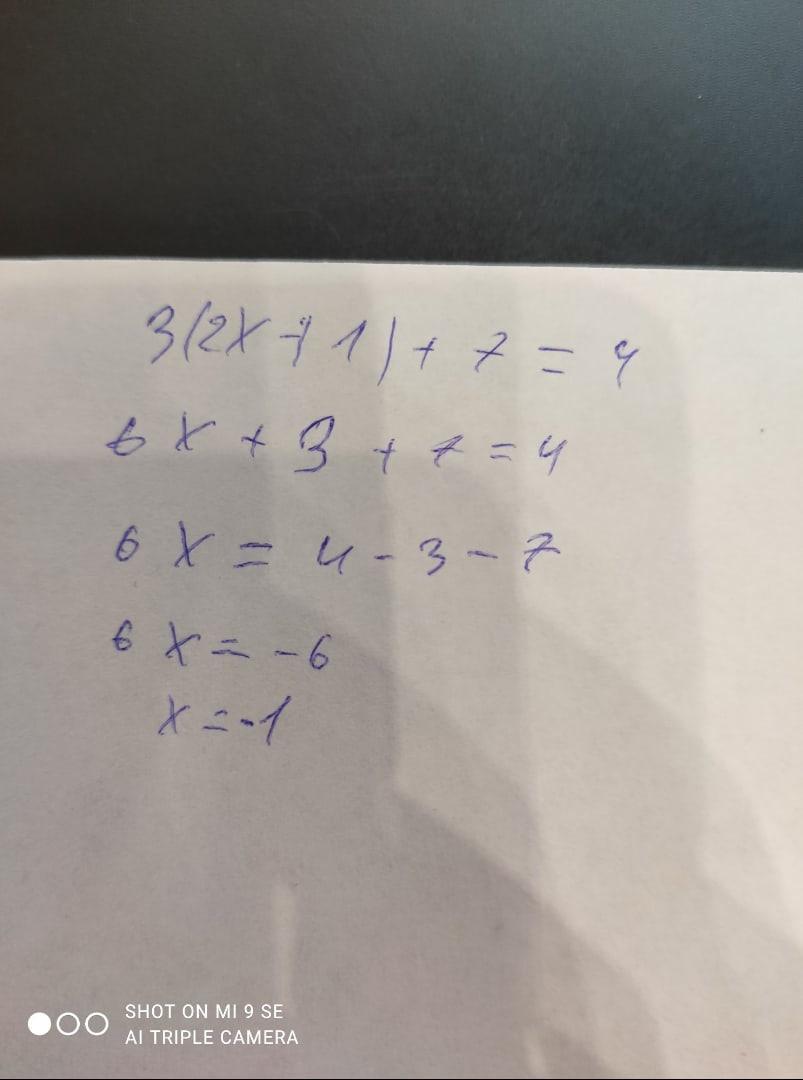 3(2x+1)+7=4
6x+3+7=4
6x=4-3-7
6x=-6
x=-1
SHOT ON MI 9 SE
AI TRIPLE CAMERA